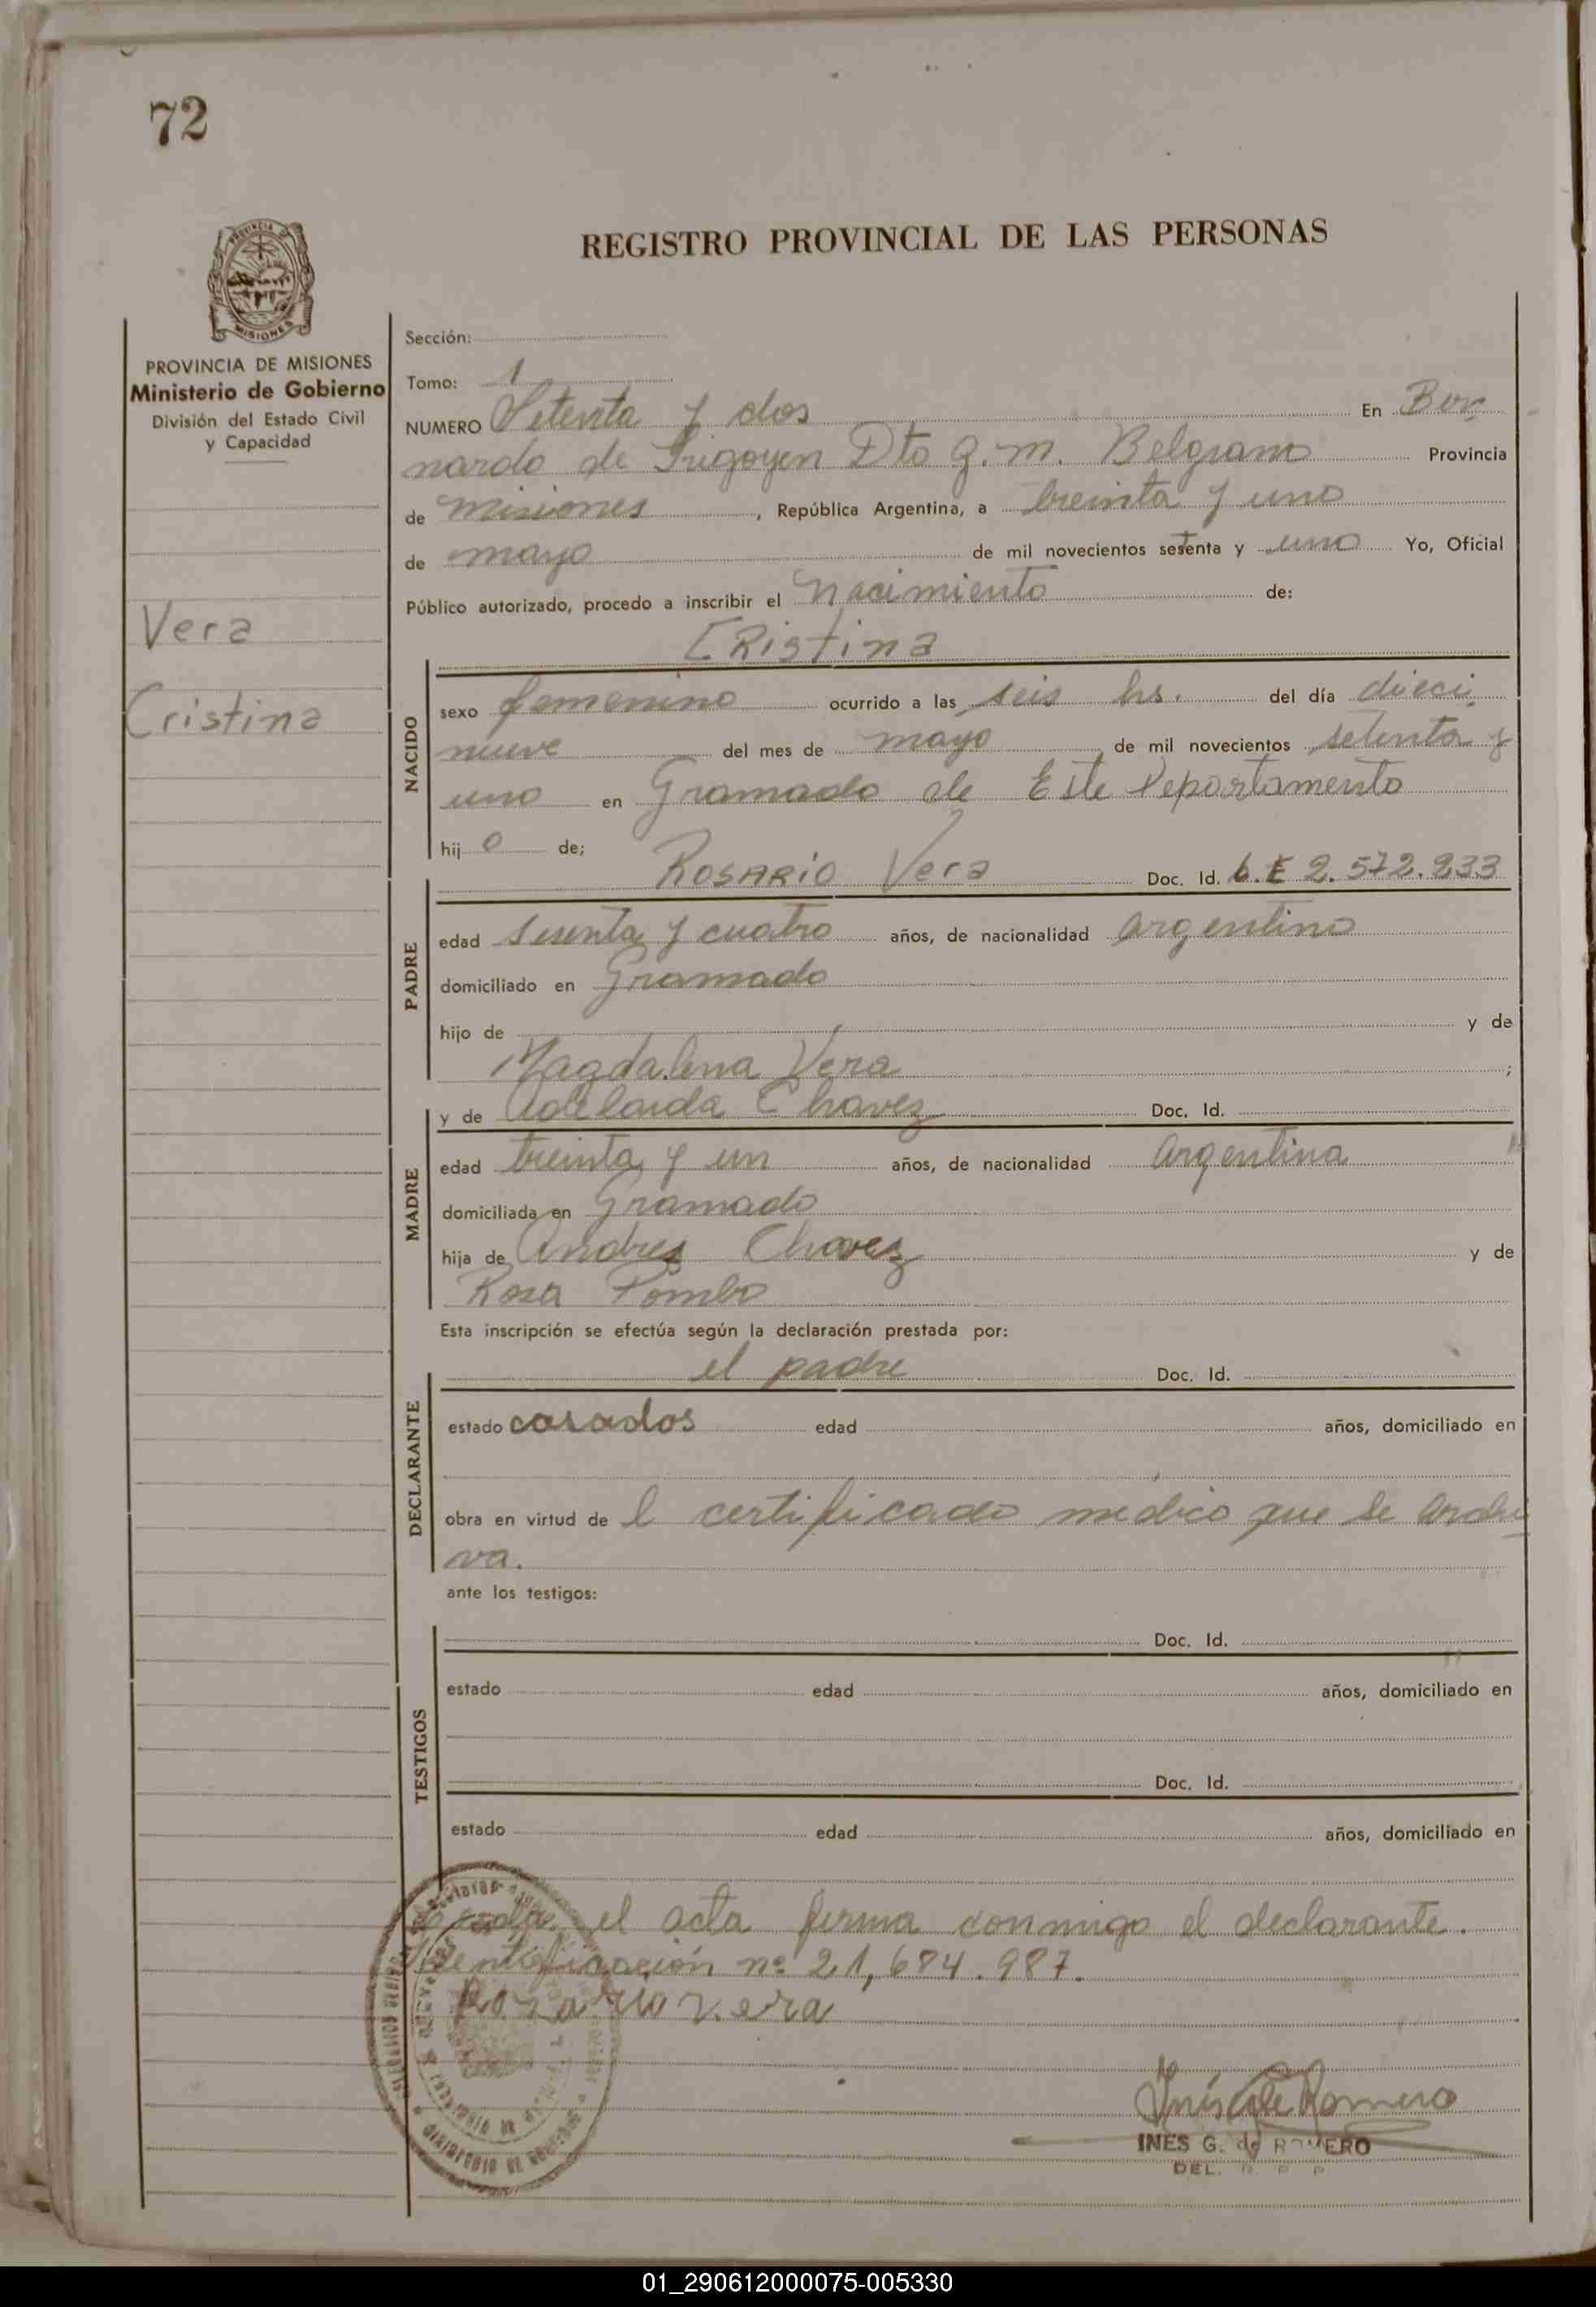 72
REGISTRO PROVINCIAL DE LAS PERSONAS
MISIONES
PROVINCIA DE MISIONES
Ministerio de Gobierno
División del Estado Civil
y Capacidad
Vera
Cristina
Sección:
Tomo: 1
NUMERO Setenta y dos En Ber
nardo de Irigoyen Dto G. M. Belgrano Provincia
de Misiones, República Argentina, a treinta y uno
de mayo de mil novecientos setenta y uno Yo, Oficial
Público autorizado, procedo a inscribir el Nacimiento de:
CRistina
NACIDO
sexo femenino ocurrido a las seis hs. del día dieci
nueve del mes de mayo de mil novecientos setenta y
uno en Gramado de Este Departamento
hij o de;
Rosario Vera Doc. Id. L.E 2.572.233
PADRE
edad sesenta y cuatro años, de nacionalidad argentino
domiciliado en Gramado
hijo de y de
Magdalena Vera ;
y de Adelaida Chavez Doc. Id.
MADRE
edad treinta y un años, de nacionalidad argentina
domiciliada en Gramado
hija de Andres Chavez y de
Rosa Pombo
Esta inscripción se efectúa según la declaración prestada por:
el padre Doc. Id.
DECLARANTE
estado casados edad años, domiciliado en
obra en virtud de l certificado medico que se archi
va.
ante los testigos:
Doc. Id.
TESTIGOS
estado edad años, domiciliado en
Doc. Id.
estado edad años, domiciliado en
el acta firma conmigo el declarante.
Identificación nº 21,684.987.
Rosario vera
Inés G. de Romero
INES G. de ROMERO
DEL. R. P. P
01_290612000075-005330